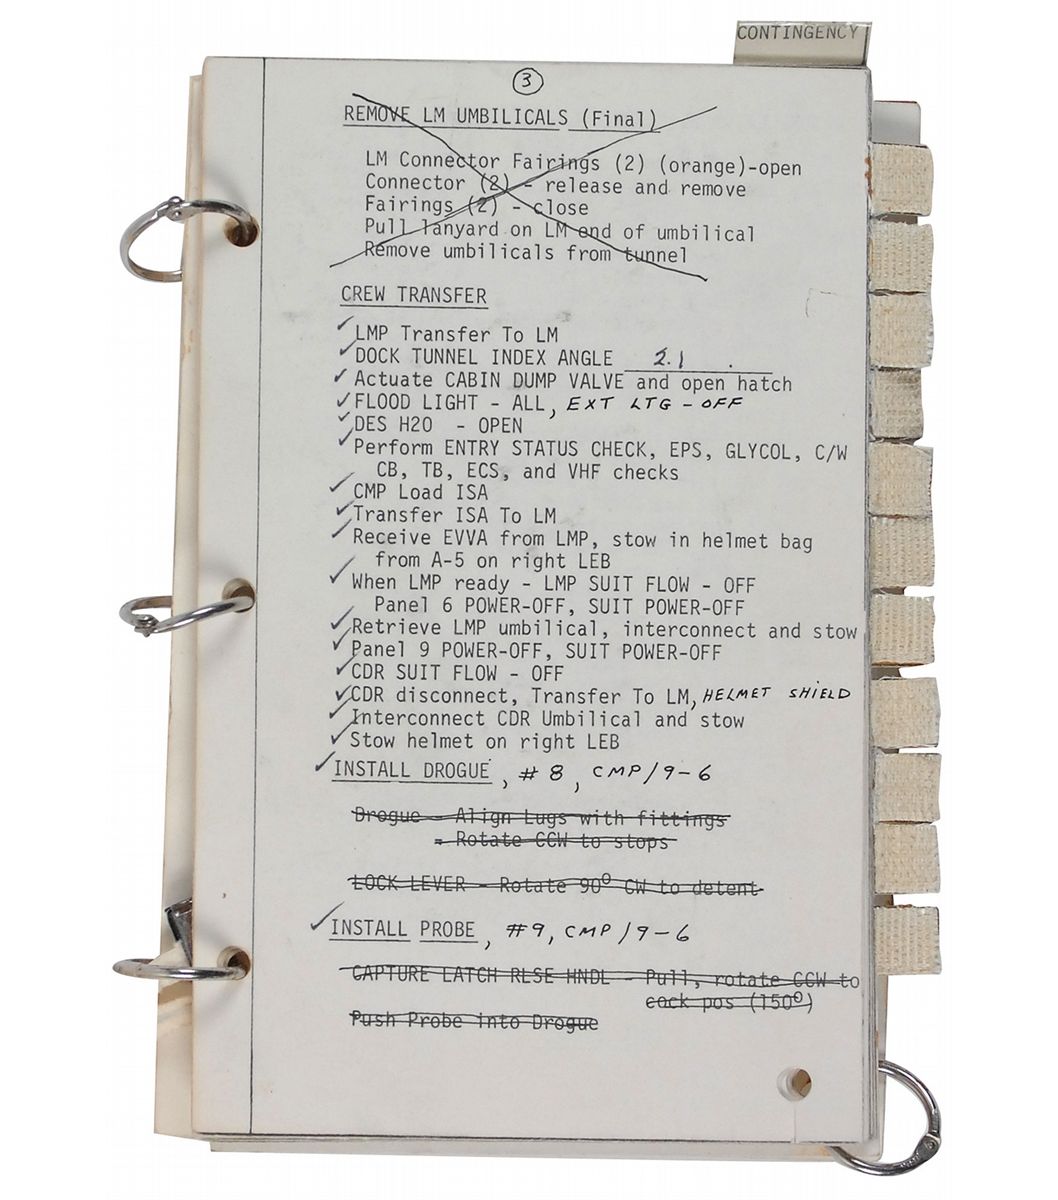 CONTINGENCY
3
REMOVE LM UMBILICALS (Final)
LM Connector Fairings (2) (orange)-open
Connector (2) - release and remove
Fairings (2) - close
Pull lanyard on LM end of umbilical
Remove umbilicals from tunnel
CREW TRANSFER
✓LMP Transfer To LM
✓DOCK TUNNEL INDEX ANGLE 2.1 .
✓Actuate CABIN DUMP VALVE and open hatch
✓FLOOD LIGHT - ALL, EXT LTG - OFF
✓DES H2O - OPEN
✓Perform ENTRY STATUS CHECK, EPS, GLYCOL, C/W
CB, TB, ECS, and VHF checks
✓CMP Load ISA
✓Transfer ISA To LM
✓Receive EVVA from LMP, stow in helmet bag
from A-5 on right LEB
✓When LMP ready - LMP SUIT FLOW - OFF
Panel 6 POWER-OFF, SUIT POWER-OFF
✓Retrieve LMP umbilical, interconnect and stow
✓Panel 9 POWER-OFF, SUIT POWER-OFF
✓CDR SUIT FLOW - OFF
✓CDR disconnect, Transfer To LM, HELMET SHIELD
✓Interconnect CDR Umbilical and stow
✓Stow helmet on right LEB
✓INSTALL DROGUE, #8, CMP/9-6
Drogue - Align Lugs with fittings
- Rotate CCW to stops
LOCK LEVER - Rotate 90º CW to detent
✓INSTALL PROBE, #9, CMP/9-6
CAPTURE LATCH RLSE HNDL - Pull, rotate CCW to
cock pos (150º)
Push Probe into Drogue